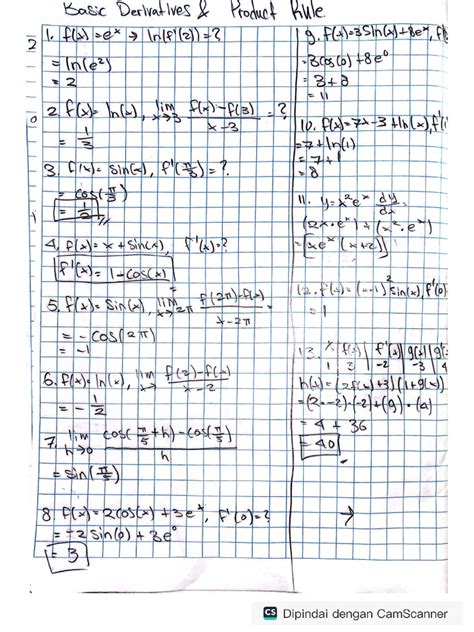 Basic Derivatives & Product Rule.
1. f(x)=e^x → ln(f'(2))=?
= ln(e²)
= 2
2. f(x)= ln(x), lim x→3 f(x)-f(3) / x-3 = ?
= 1/3
3. f(x)= sin(x), f'(π/3)=?
= cos(π/3)
= 1/2
4. f(x)= x + sin(x), f'(x)=?
f'(x)= 1-cos(x)
5. f(x)= sin(x), lim x→2π f(2π)-f(x) / x-2π =
= -cos(2π)
= -1
6. f(x)= ln(x), lim x→ f(2)-f(x) / x-2
= -1/2
7. lim h→0 cos(π/5 + h) - cos(π/5) / h
= sin(π/5)
8. f(x)=2cos(x) + 3e^x, f'(0)=?
= -2sin(0) + 3e⁰
= 3
9. f(x)=3sin(x)+8e^x, f(
=3cos(0)+8e⁰
= 3+8
= 11
10. f(x)=7x-3+ln(x), f'(1
=7+ln(1)
=7+1
=8
11. y=x²e^x dy/dx
(2x·e^x)+(x²·e^x)
= xe^x(x+2)
12. f(x)= (-1)² sin(x), f'(0)
= 1
13. x f(x) f'(x) g(x) g(
1 3 -2 -3 4
h(x)=(2f(x)+3)(1+g(x))
=(2·-2)·(-2)+(9)·(4)
= 4 + 36
= 40
→
CS Dipindai dengan CamScanner